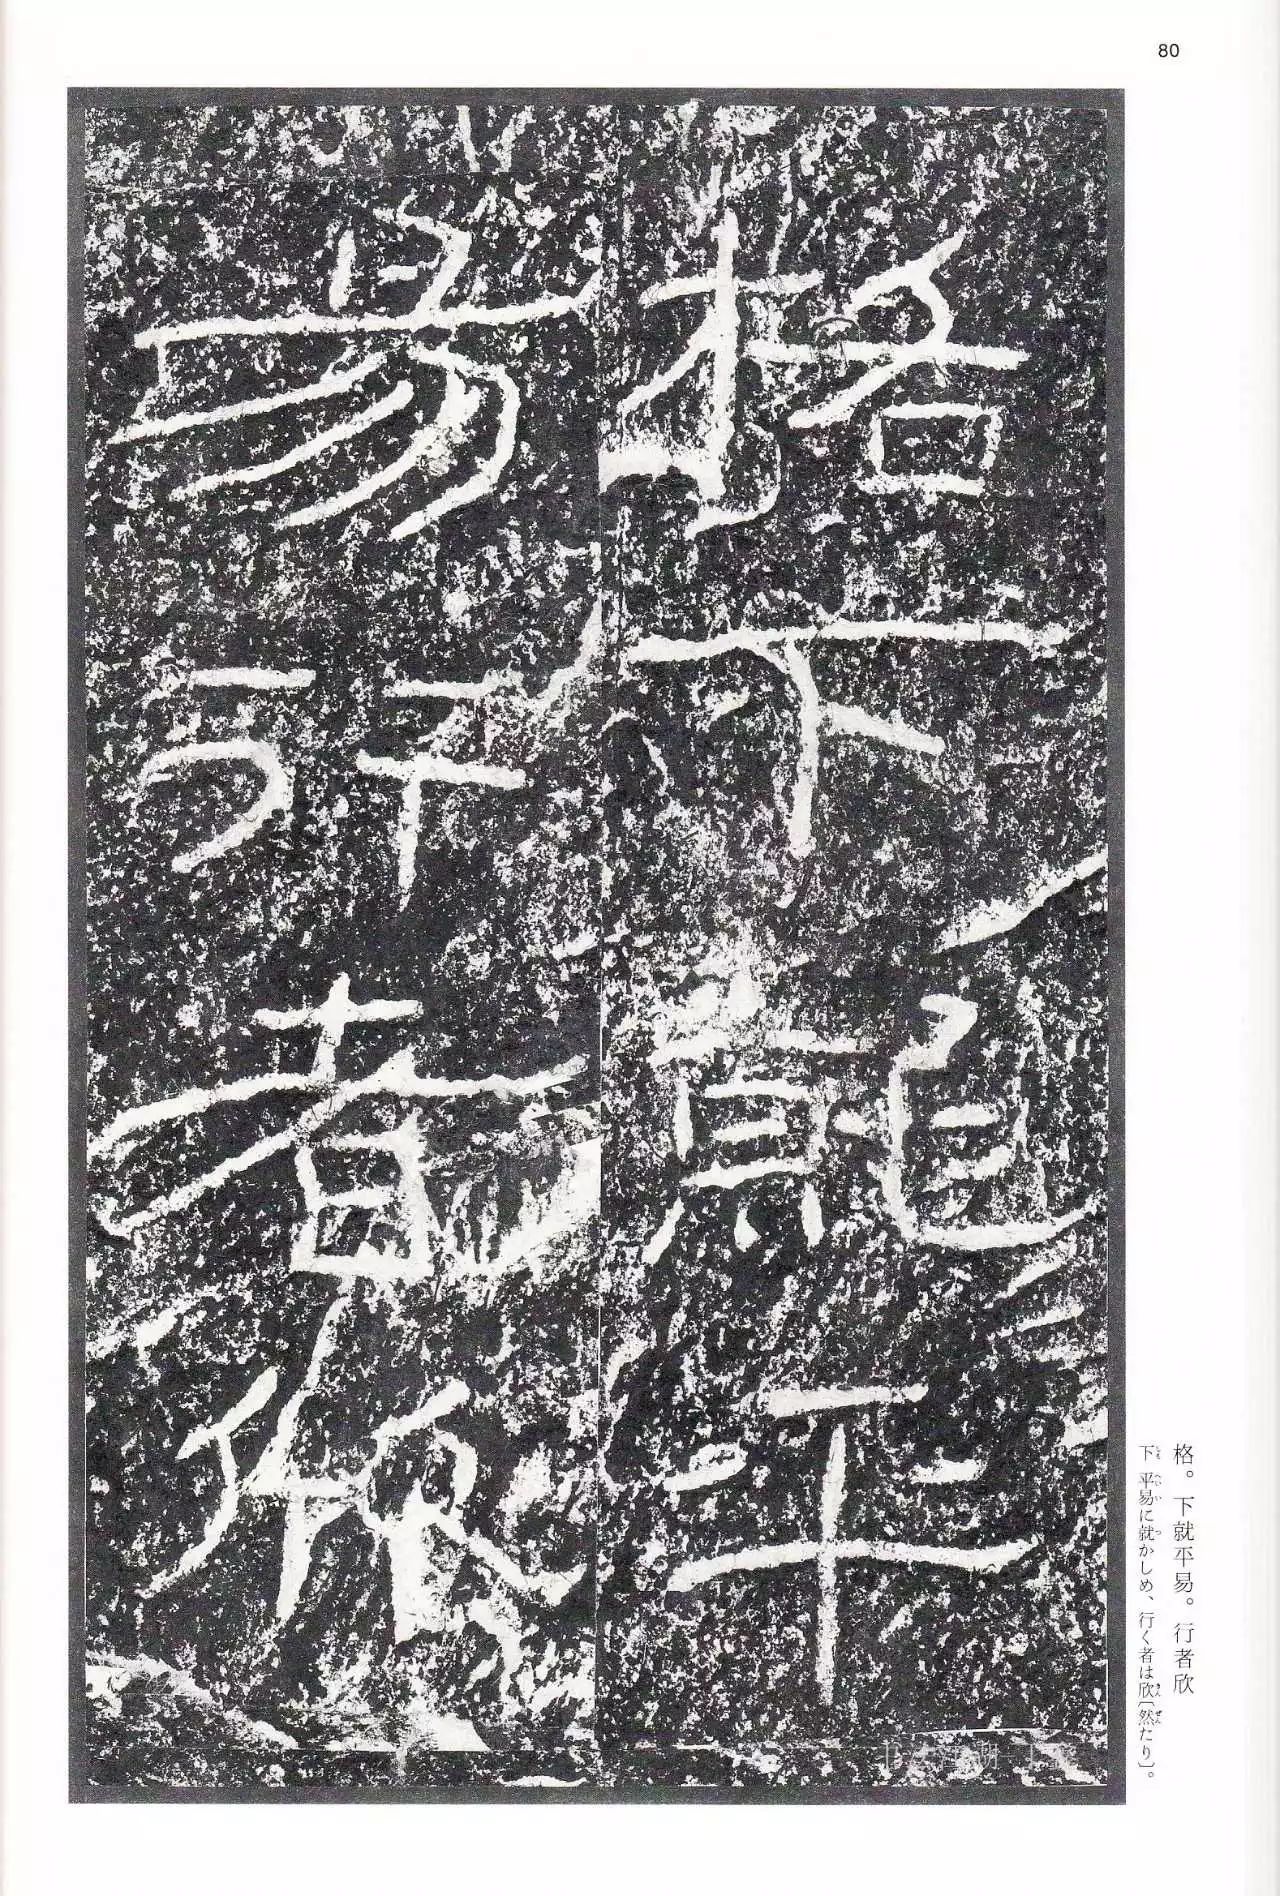 80
格下就平
易行者欣
格。下就平易。行者欣
下平易に就かしめ、行く者は欣〔然たり〕。